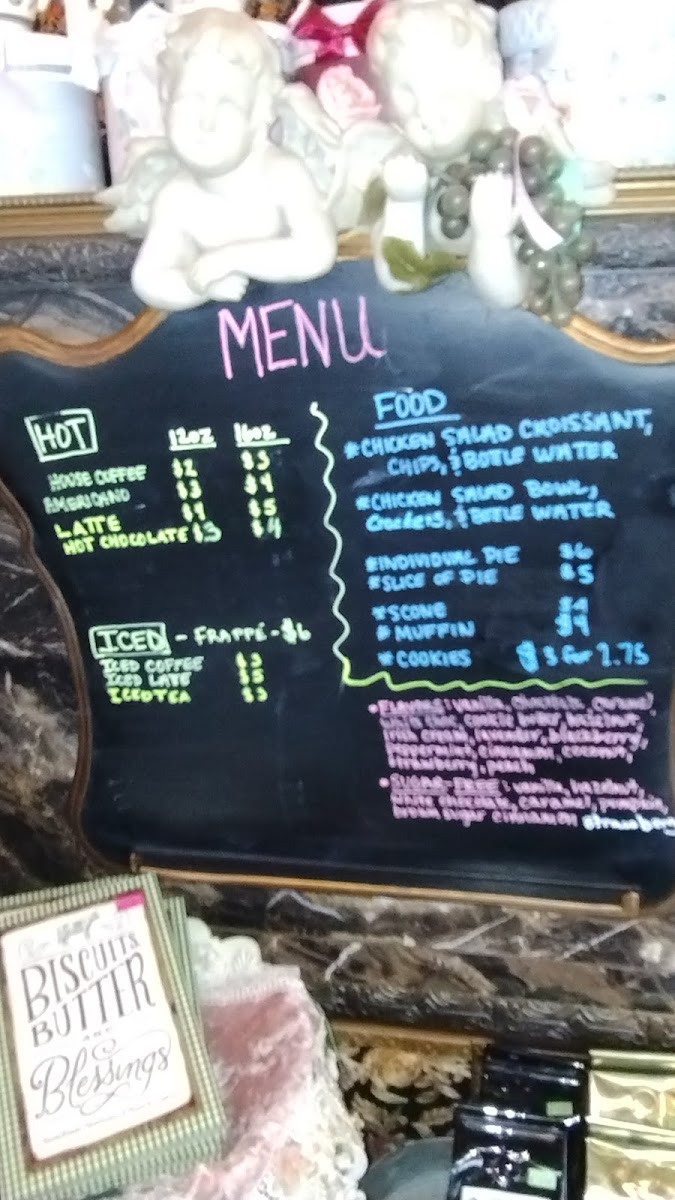 MENU
HOT 12oz 16oz
HOUSE COFFEE $2 $3
AMERICANO $3 $4
LATTE $4 $5
HOT CHOCOLATE $3 $4
ICED - FRAPPÉ - $6
ICED COFFEE $3
ICED LATE $5
ICED TEA $3
FOOD
*CHICKEN SALAD CROISSANT,
CHIPS, & BOTLE WATER
*CHICKEN SALAD BOWL,
Crackers, & BOTLE WATER
*INDIVIDUAL PIE $6
*SLICE OF PIE $5
*SCONE $4
*MUFFIN $4
*COOKIES $3 for 2.75
•FLAVORS: vanilla, chocolate, caramel,
cookie butter, hazelnut,
lavender, blackberry,
peppermint, cinnamon, coconut,
strawberry, peach
•SUGAR-FREE: vanilla, hazelnut,
white chocolate, caramel, pumpkin,
brown sugar cinnamon strawberry
BISCUITS,
BUTTER
AND
Blessings